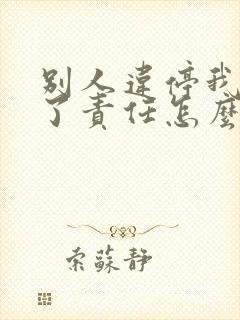 別人違停我
了責任怎麼
索蘇靜